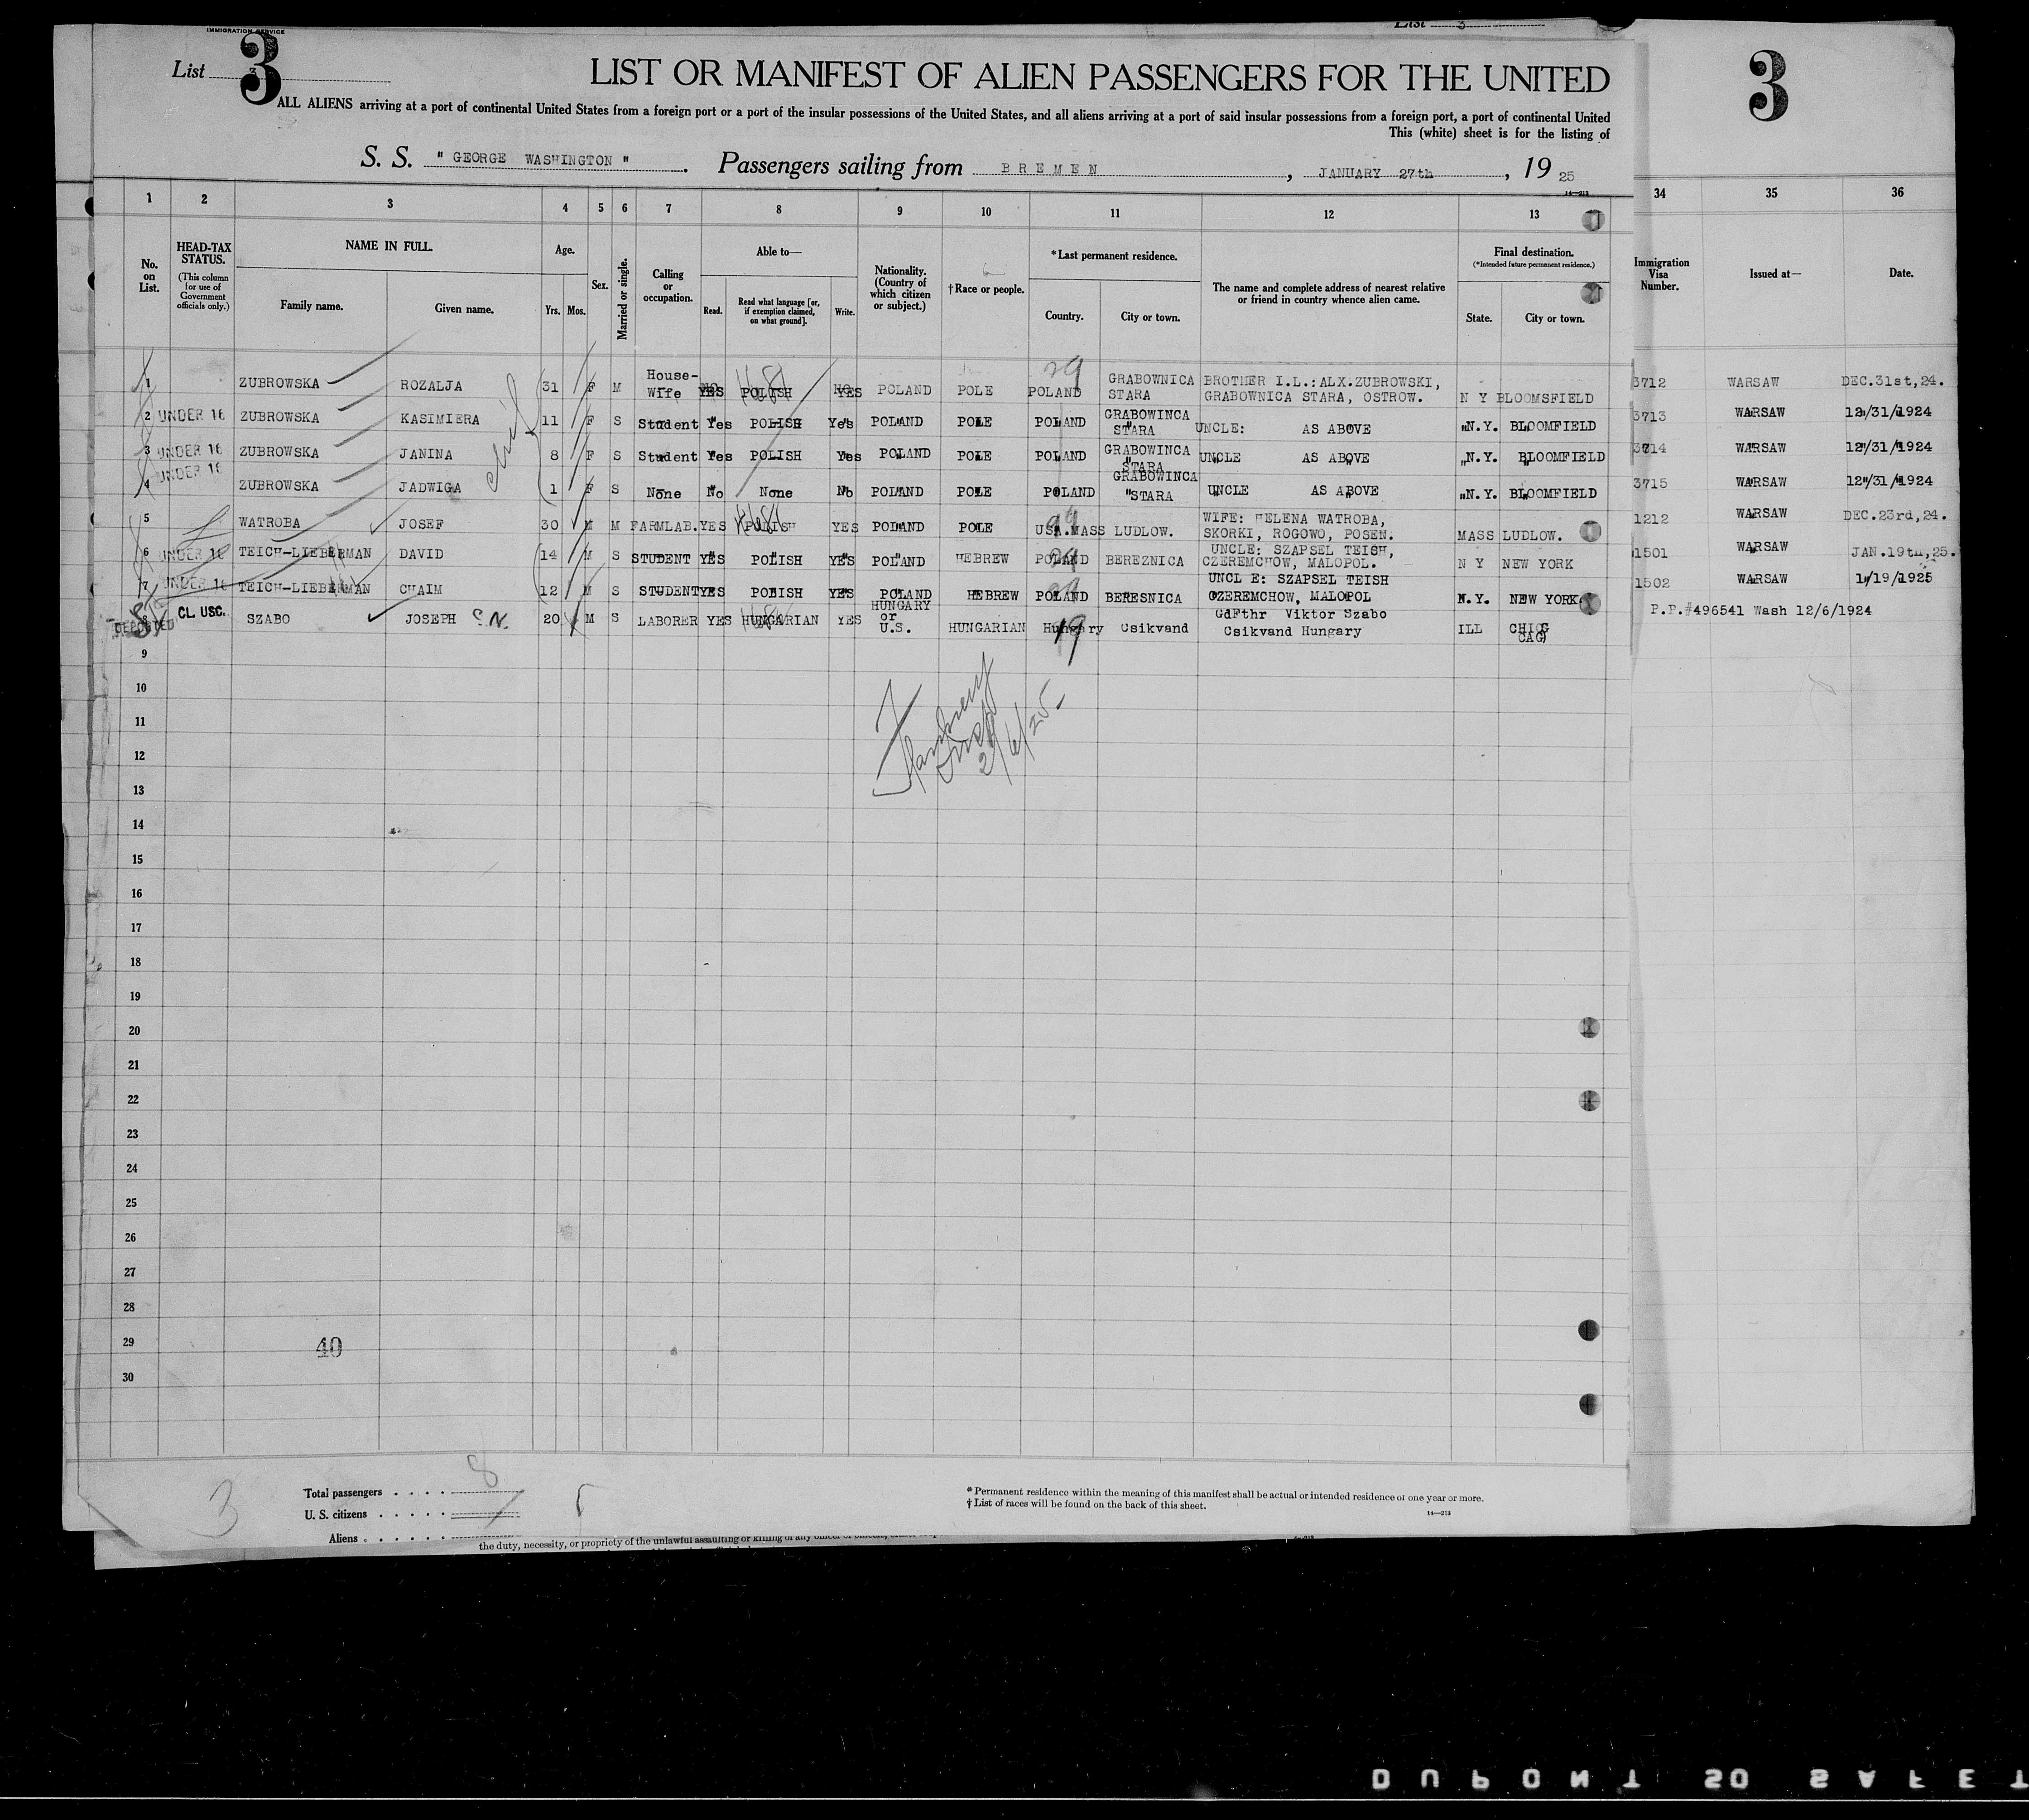 List 3
IMMIGRATION SERVICE
List 3
3
LIST OR MANIFEST OF ALIEN PASSENGERS FOR THE UNITED
3
ALL ALIENS arriving at a port of continental United States from a foreign port or a port of the insular possessions of the United States, and all aliens arriving at a port of said insular possessions from a foreign port, a port of continental United
This (white) sheet is for the listing of
S. S. " GEORGE WASHINGTON ". Passengers sailing from BREMEN, JANUARY 27th, 19 25
14—213
1 2 3 4 5 6 7 8 9 10 11 12 13 34 35 36
No. on List.
HEAD-TAX STATUS.
(This column for use of Government officials only.)
NAME IN FULL.
Family name. Given name.
Age.
Yrs. Mos.
Sex.
Married or single.
Calling or occupation.
Able to—
Read. Read what language [or, if exemption claimed, on what ground]. Write.
Nationality. (Country of which citizen or subject.)
†Race or people.
*Last permanent residence.
Country. City or town.
The name and complete address of nearest relative or friend in country whence alien came.
Final destination.
(*Intended future permanent residence.)
State. City or town.
Immigration Visa Number.
Issued at—
Date.
1 ZUBROWSKA ROZALJA 31 F M House-Wife YES POLISH YES POLAND POLE POLAND GRABOWNICA STARA BROTHER I.L.:ALX.ZUBROWSKI, GRABOWNICA STARA, OSTROW. N Y BLOOMSFIELD 3712 WARSAW DEC.31st,24.
2 UNDER 16 ZUBROWSKA KASIMIERA 11 F S Student Yes POLISH Yes POLAND POLE POLAND GRABOWINCA STARA UNCLE: AS ABOVE N.Y. BLOOMFIELD 3713 WARSAW 12/31/1924
3 UNDER 16 ZUBROWSKA JANINA 8 F S Student Yes POLISH Yes POLAND POLE POLAND GRABOWINCA STARA UNCLE AS ABOVE N.Y. BLOOMFIELD 3714 WARSAW 12/31/1924
4 UNDER 16 ZUBROWSKA JADWIGA 1 F S None No None No POLAND POLE POLAND GRABOWINCA STARA UNCLE AS ABOVE N.Y. BLOOMFIELD 3715 WARSAW 12/31/1924
5 WATROBA JOSEF 30 M M FARMLAB. YES POLISH YES POLAND POLE USA.MASS LUDLOW. WIFE: HELENA WATROBA, SKORKI, ROGOWO, POSEN. MASS LUDLOW. 1212 WARSAW DEC.23rd,24.
6 UNDER 16 TEICH-LIEBERMAN DAVID 14 M S STUDENT YES POLISH YES POLAND HEBREW POLAND BEREZNICA UNCLE: SZAPSEL TEISH, CZEREMCHOW, MALOPOL. N Y NEW YORK 1501 WARSAW JAN.19th,25.
7 UNDER 16 TEICH-LIEBERMAN CHAIM 12 M S STUDENT YES POLISH YES POLAND HEBREW POLAND BERESNICA UNCL E: SZAPSEL TEISH CZEREMCHOW, MALOPOL N.Y. NEW YORK 1502 WARSAW 1/19/1925
8 DEPORTED CL USC. SZABO JOSEPH 20 M S LABORER YES HUNGARIAN YES HUNGARY or U.S. HUNGARIAN Hungary Csikvand GdFthr Viktor Szabo Csikvand Hungary ILL CHICAGO P.P.#496541 Wash 12/6/1924
9
10
11
12
2/6/25
13
14
15
16
17
18
19
20
21
22
23
24
25
26
27
28
29
40
30
3
Total passengers . . . . 8
U. S. citizens . . . . .
Aliens . . . . . .
* Permanent residence within the meaning of this manifest shall be actual or intended residence of one year or more.
† List of races will be found on the back of this sheet.
14—213
the duty, necessity, or propriety of the unlawful assaulting or killing of any officer or officers,
DUPONT SO SAFET